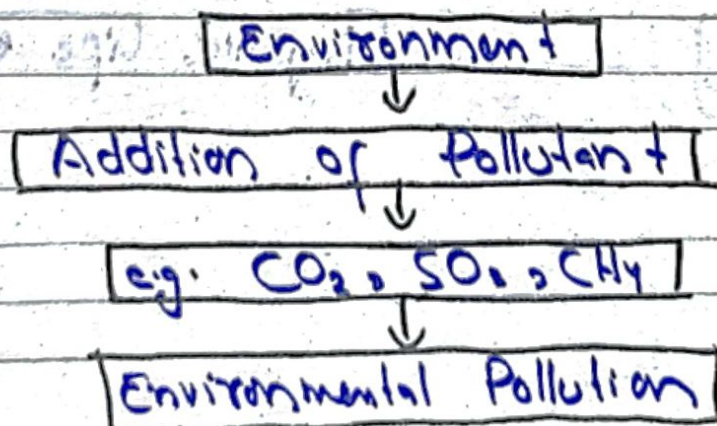 Environment
↓
Addition of Pollutant
↓
e.g. CO₂, SO₂, CH₄
↓
Environmental Pollution